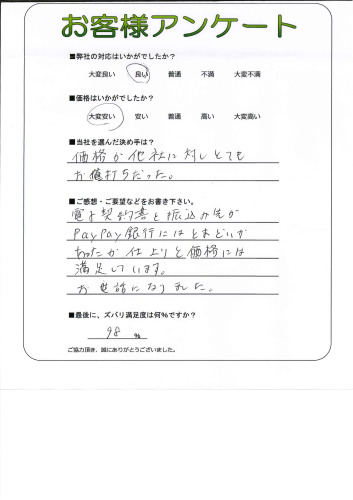 お客様アンケート
■弊社の対応はいかがでしたか？
大変良い 良い 普通 不満 大変不満
■価格はいかがでしたか？
大変安い 安い 普通 高い 大変高い
■当社を選んだ決め手は？
価格が他社に対しとても
お値打ちだった。
■ご感想・ご要望などをお書き下さい。
電子契約書と振込み先が
PayPay銀行にはとまどいが
あったが仕上りと価格には
満足しています。
お世話になりました。
■最後に、ズバリ満足度は何％ですか？
98 ％
ご協力頂き、誠にありがとうございました。